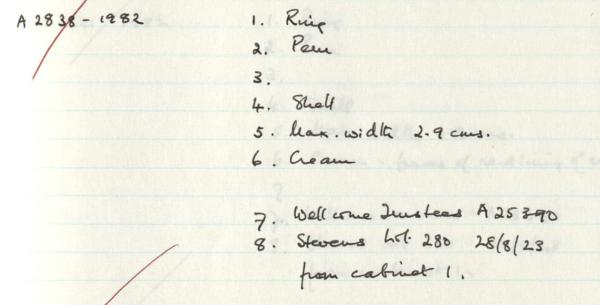 A 2838 - 1982
1. Ring
2. Peru
3.
4. Shell
5. Max. width 2.9 cms.
6. Cream
7. Wellcome Trustees A 25390
8. Stevens lot. 280 28/8/23
from cabinet 1.